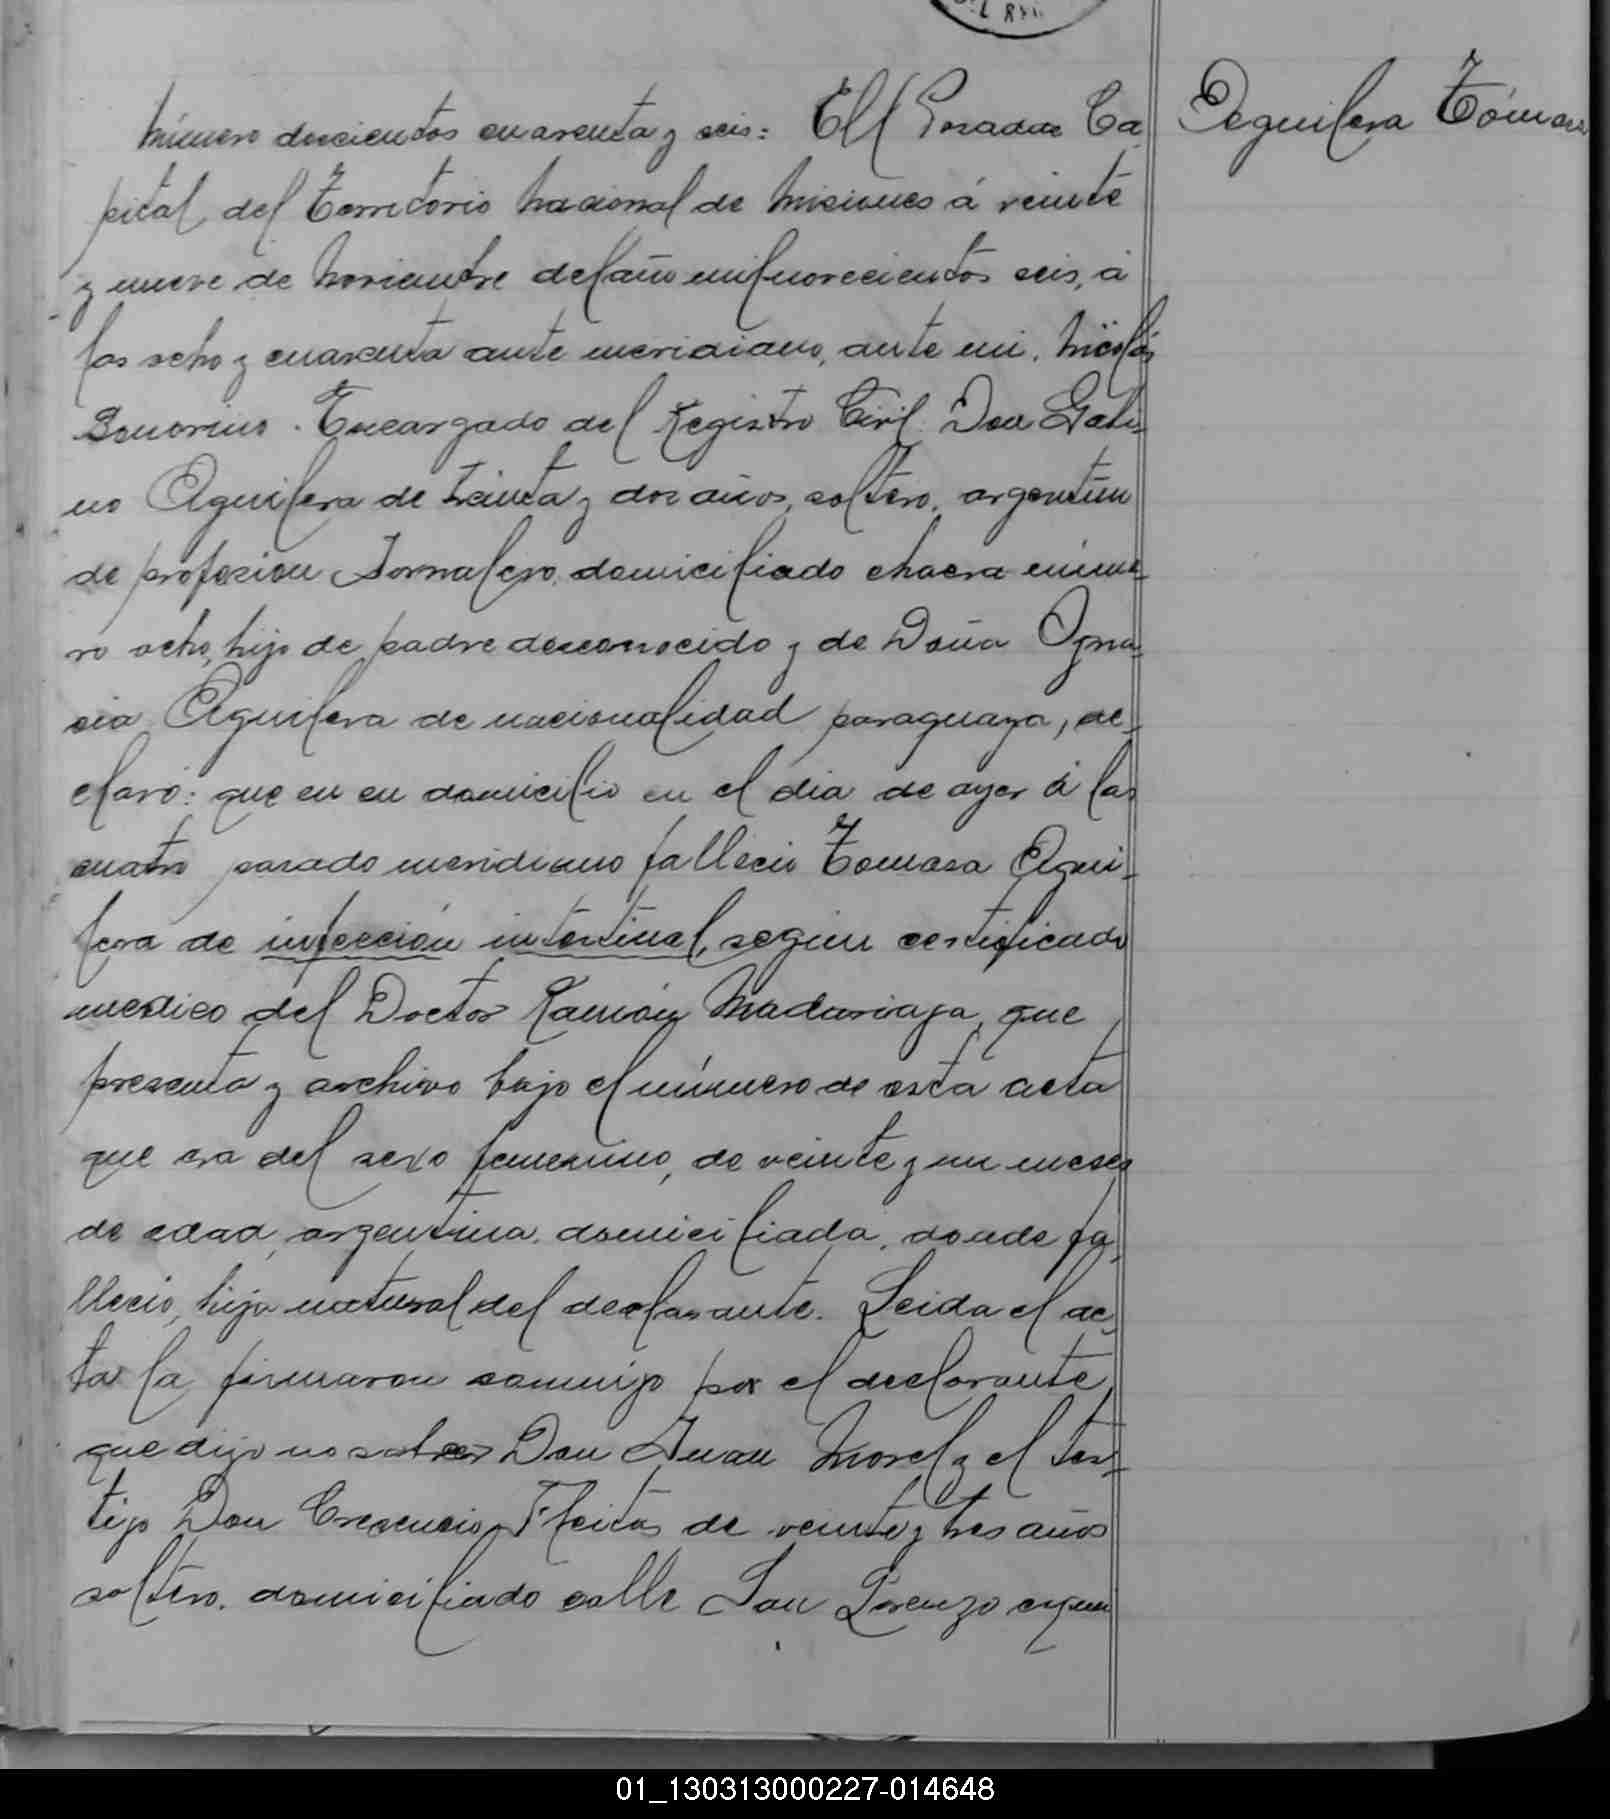 Aguilera Tómasa
Número doscientos cuarenta y seis: En Posadas Ca-
pital del Territorio Nacional de Misiones á veinte
y nueve de Noviembre del año mil novecientos seis, á
las ocho y cuarenta ante meridiano, ante mi, Nicolás
Encargado del Registro Civil. Don Gabi-
no Aguilera de treinta y dos años, soltero, argentino
de profesion Jornalero, domiciliado chacra núme-
ro ocho, hijo de padre desconocido y de Doña Igna-
cia Aguilera de nacionalidad paraguaya, de-
claró: que en su domicilio en el dia de ayer á las
cuatro pasado meridiano falleció Tomasa Agui-
lera de infección intestinal, segun certificado
medico del Doctor Ramón Madariaga, que
presenta y archivo bajo el número de esta acta
que era del sexo femenino, de veinte y un meses
de edad, argentina, domiciliada, donde fa-
lleció, hija natural del declarante. Leida el ac-
ta la firmaron conmigo por el declarante
que dijo no saber Don Juan Morel y el tes-
tigo Don Cresencio Fleitas de veinte y tres años
soltero, domiciliado calle San Lorenzo esqui
01_130313000227-014648